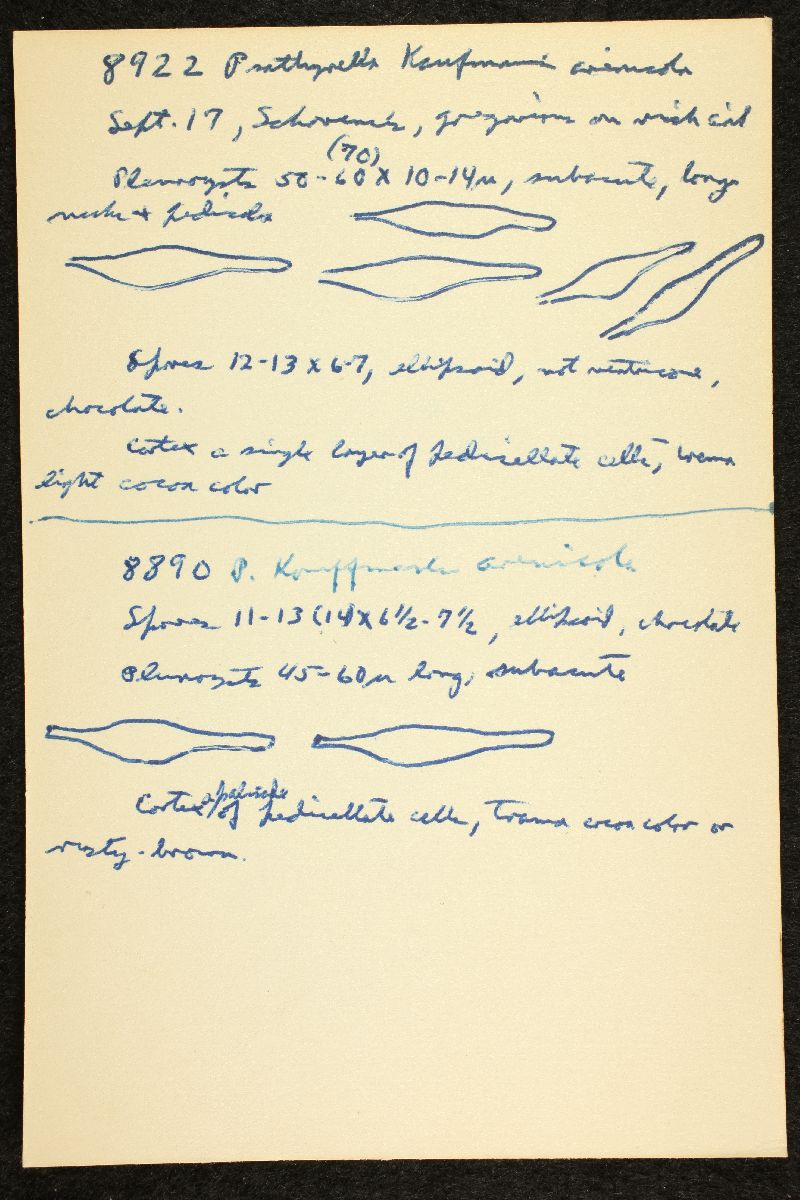 8922 Psathyrella Kauffmanii arenicola
Sept. 17, gregarious on rich soil
(70)
Pleurocysts 50-60 X 10-14µ, subacute, long
neck & pedicels
Spores 12-13 x 6-7, ellipsoid, not ventricose,
chocolate.
Cortex a single layer of pedicellate cells, trama
light cocoa color
8890 P. Kauffmanii arenicola
Spores 11-13 (14) x 6½-7½, ellipsoid, chocolate
Pleurocysts 45-60µ long, subacute
a palisade
Cortex of pedicellate cells, Trama cocoa color or
rusty-brown.